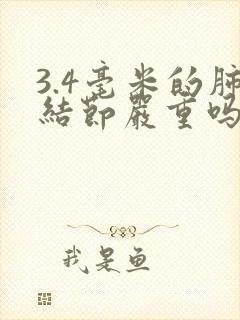 3.4毫米的肺
結節嚴重吗
我是鱼